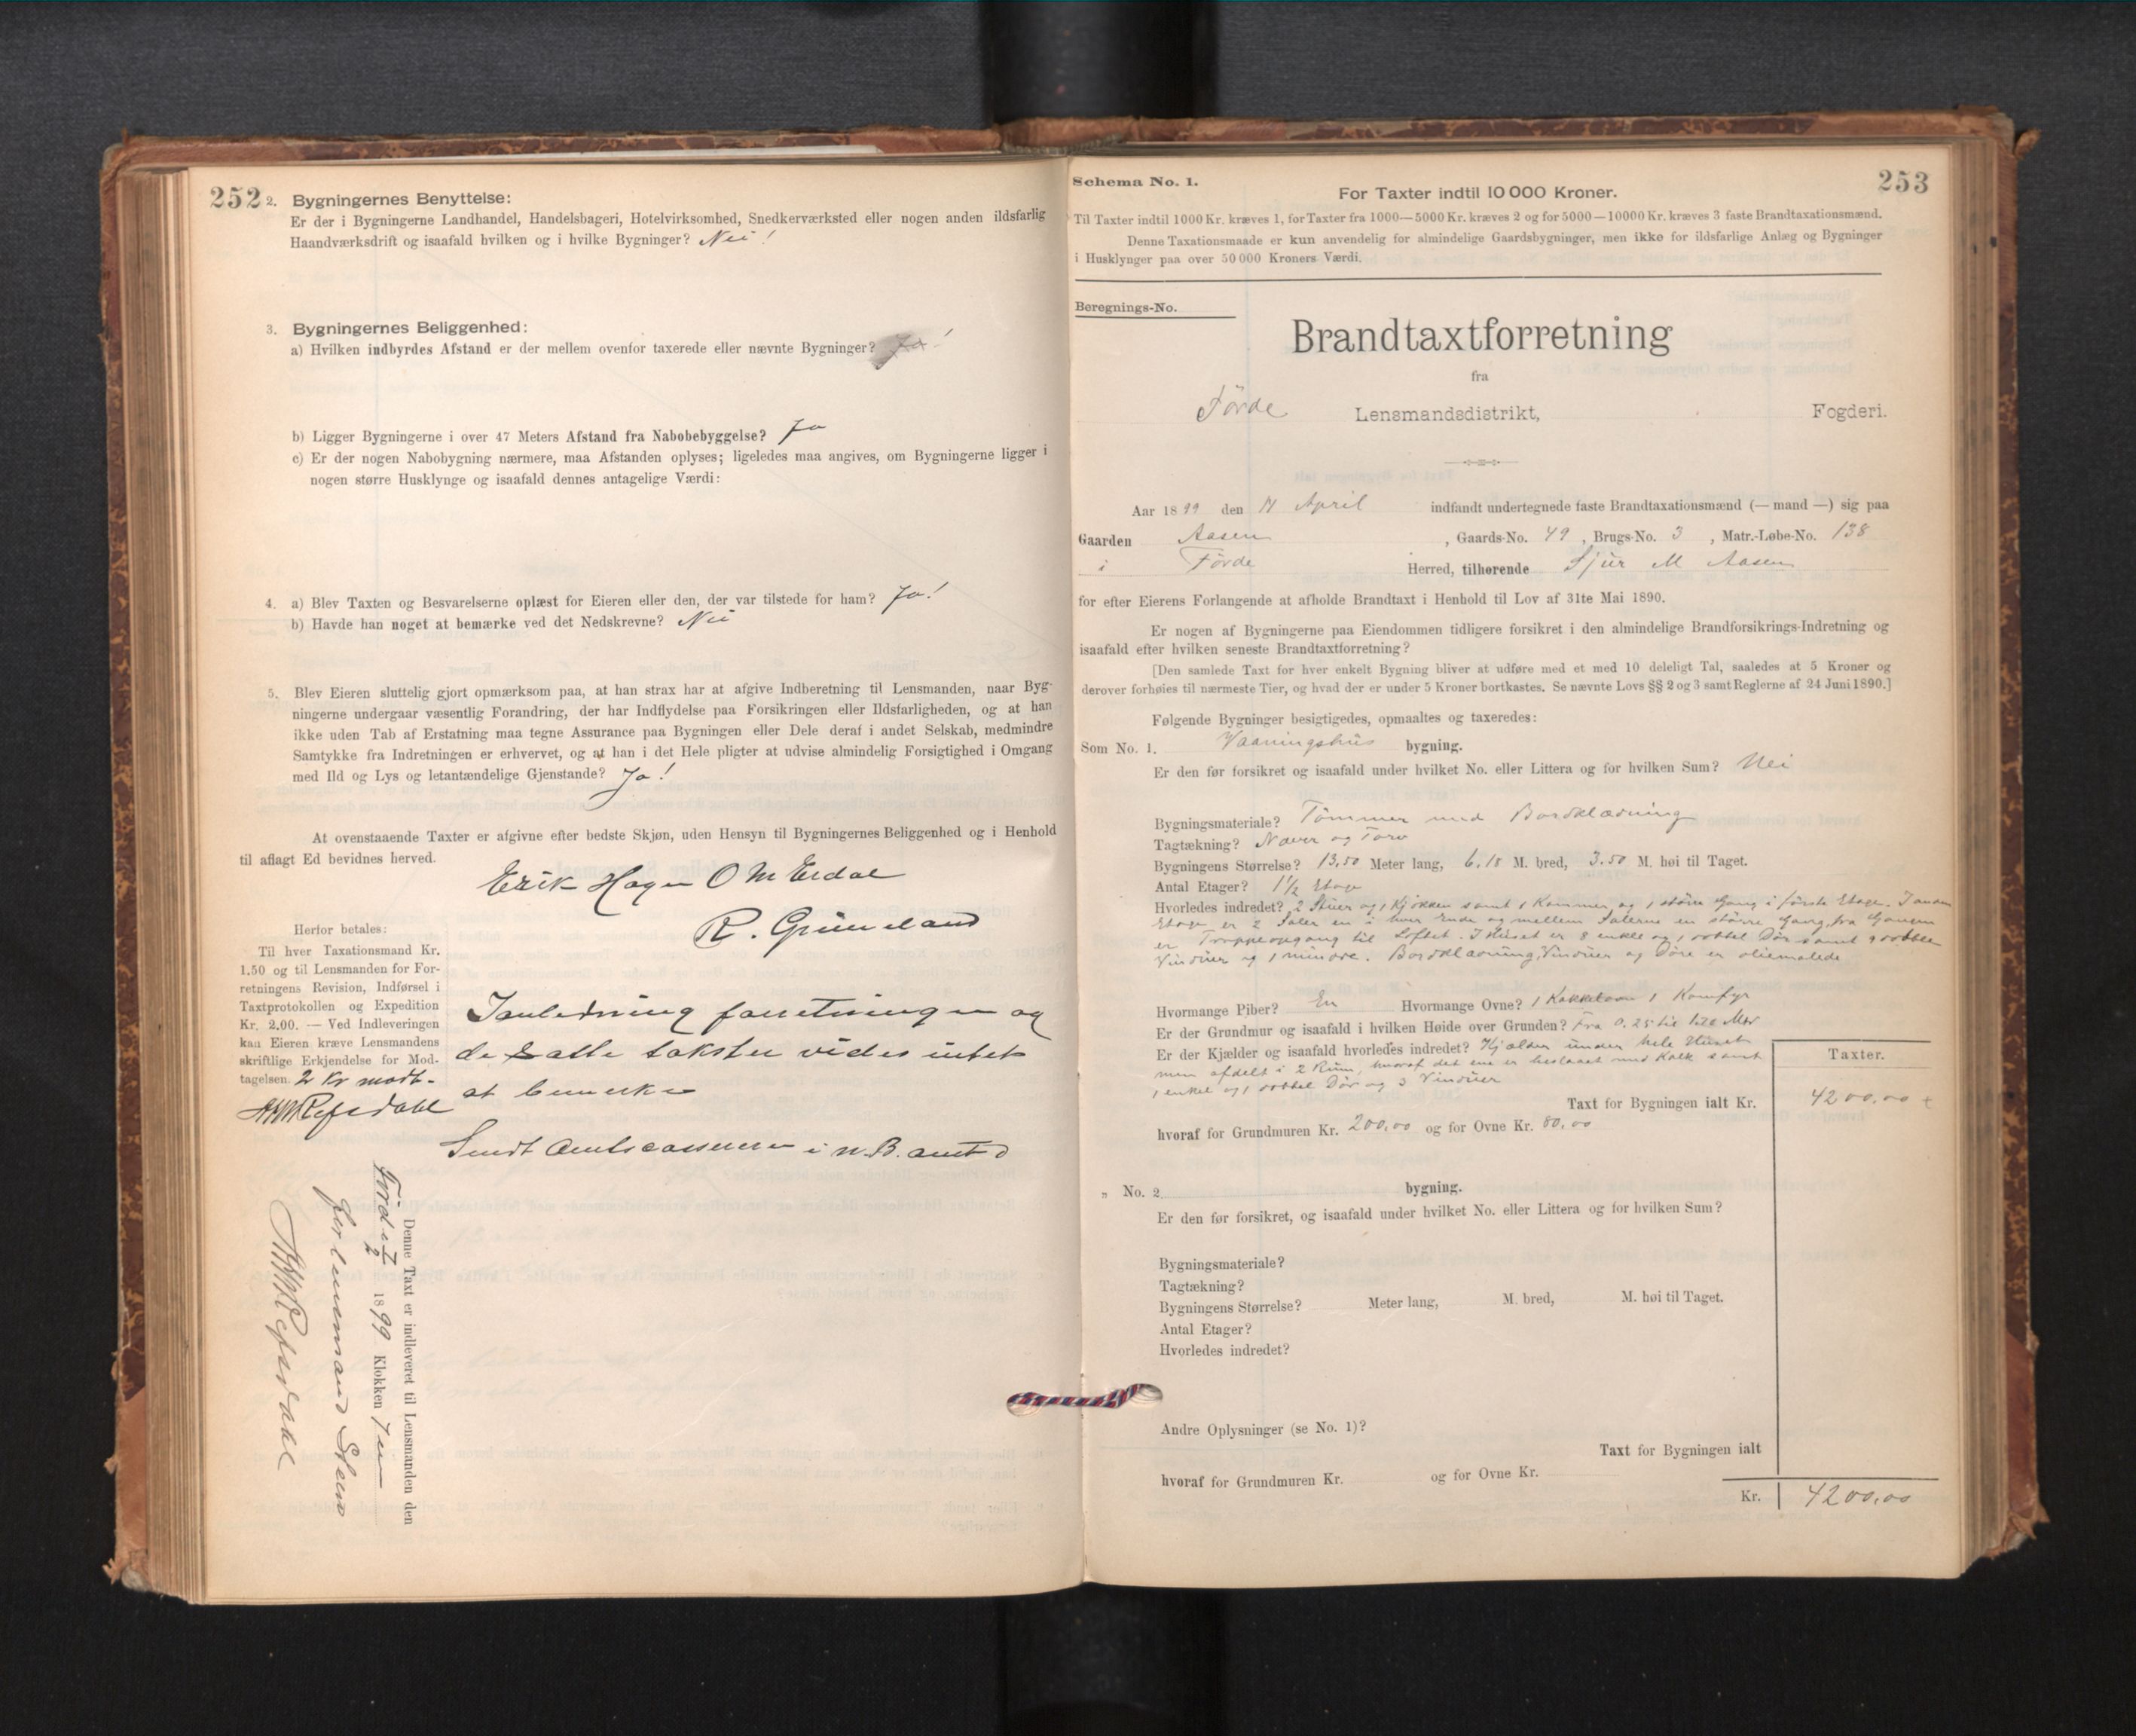 252
2. Bygningernes Benyttelse:
Er der i Bygningerne Landhandel, Handelsbageri, Hotelvirksomhed, Snedkerværksted eller nogen anden ildsfarlig
Haandværksdrift og isaafald hvilken og i hvilke Bygninger? Nei!
3. Bygningernes Beliggenhed:
a) Hvilken indbyrdes Afstand er der mellem ovenfor taxerede eller nævnte Bygninger? Ja!
b) Ligger Bygningerne i over 47 Meters Afstand fra Nabobebyggelse? Ja
c) Er der nogen Nabobygning nærmere, maa Afstanden oplyses; ligeledes maa angives, om Bygningerne ligger i
nogen større Husklynge og isaafald dennes antagelige Værdi:
4. a) Blev Taxten og Besvarelserne oplæst for Eieren eller den, der var tilstede for ham? Ja!
b) Havde han noget at bemærke ved det Nedskrevne? Nei
5. Blev Eieren sluttelig gjort opmærksom paa, at han strax har at afgive Indberetning til Lensmanden, naar Byg-
ningerne undergaar væsentlig Forandring, der har Indflydelse paa Forsikringen eller Ildsfarligheden, og at han
ikke uden Tab af Erstatning maa tegne Assurance paa Bygningen eller Dele deraf i andet Selskab, medmindre
Samtykke fra Indretningen er erhvervet, og at han i det Hele pligter at udvise almindelig Forsigtighed i Omgang
med Ild og Lys og letantændelige Gjenstande? Ja!
At ovenstaaende Taxter er afgivne efter bedste Skjøn, uden Hensyn til Bygningernes Beliggenhed og i Henhold
til aflagt Ed bevidnes herved.
Erik Hagen O M Erdal
R. Grimeland
Herfor betales:
Til hver Taxationsmand Kr.
1.50 og til Lensmanden for For-
retningens Revision, Indførsel i
Taxtprotokollen og Expedition
Kr. 2.00. — Ved Indleveringen
kan Eieren kræve Lensmandens
skriftlige Erkjendelse for Mod-
tagelsen. 2 Kr modt.
Refsdahl
I anledning forretningen og
de satte takster vides intet
at bemerke
Sendt Amtscasserer i N. B. amt
Denne Taxt er indleveret til Lensmanden den
Förde 1899 Klokken
for lensmand Steen
Refsdahl
253
Schema No. 1.
For Taxter indtil 10 000 Kroner.
Til Taxter indtil 1000 Kr. kræves 1, for Taxter fra 1000—5000 Kr. kræves 2 og for 5000—10000 Kr. kræves 3 faste Brandtaxationsmænd.
Denne Taxationsmaade er kun anvendelig for almindelige Gaardsbygninger, men ikke for ildsfarlige Anlæg og Bygninger
i Husklynger paa over 50 000 Kroners Værdi.
Beregnings-No.
Brandtaxtforretning
fra
Förde Lensmandsdistrikt, Fogderi.
Aar 1899 den April indfandt undertegnede faste Brandtaxationsmænd (— mand —) sig paa
Gaarden Aasen, Gaards-No. 49, Brugs-No. 3, Matr.-Løbe-No. 138
i Förde Herred, tilhørende Sjur M Aasen
for efter Eierens Forlangende at afholde Brandtaxt i Henhold til Lov af 31te Mai 1890.
Er nogen af Bygningerne paa Eiendommen tidligere forsikret i den almindelige Brandforsikrings-Indretning og
isaafald efter hvilken seneste Brandtaxtforretning?
[Den samlede Taxt for hver enkelt Bygning bliver at udføre med et med 10 deleligt Tal, saaledes at 5 Kroner og
derover forhøies til nærmeste Tier, og hvad der er under 5 Kroner bortkastes. Se nævnte Lovs §§ 2 og 3 samt Reglerne af 24 Juni 1890.]
Følgende Bygninger besigtigedes, opmaaltes og taxeredes:
Som No. 1. Vaaningshus bygning.
Er den før forsikret og isaafald under hvilket No. eller Littera og for hvilken Sum? Nei
Bygningsmateriale? Tömmer med Bordklædning
Tagtækning? Næver og Torv
Bygningens Størrelse? 13,50 Meter lang, 6.15 M. bred, 3.50 M. høi til Taget.
Antal Etager? 1 1/2 Etage
Hvorledes indredet? 2 Stuer og 1 Kjøkken samt 1 Kammer og 1 större Gang i förste Etage. I anden
Etage er 2 Saler en i hver Ende og mellem Salerne en större Gang, fra Gangen
er Trappeopgang til Loftet. I Huset er 8 enkle og 1 dobbel Dör samt 9 dobble
Vinduer og 1 mindre. Bordklædning, Vinduer og Döre er oliemalede
Hvormange Piber? En Hvormange Ovne? 1 Kakkelovn 1 Komfyr
Er der Grundmur og isaafald i hvilken Høide over Grunden? Fra 0.25 til 1.20 Mtr
Er der Kjælder og isaafald hvorledes indredet? Kjælder under hele Huset
men afdelt i 2 Rum, hvoraf det ene er beslaaet med Kalk samt
1 enkel og 1 dobbel Dör og 3 Vinduer
Taxter.
Taxt for Bygningen ialt Kr. 4200,00
hvoraf for Grundmuren Kr. 200,00 og for Ovne Kr. 80,00
„ No. 2 bygning.
Er den før forsikret, og isaafald under hvilket No. eller Littera og for hvilken Sum?
Bygningsmateriale?
Tagtækning?
Bygningens Størrelse? Meter lang, M. bred, M. høi til Taget.
Antal Etager?
Hvorledes indredet?
Andre Oplysninger (se No. 1)?
Taxt for Bygningen ialt
hvoraf for Grundmuren Kr. og for Ovne Kr.
Kr. 4200,00